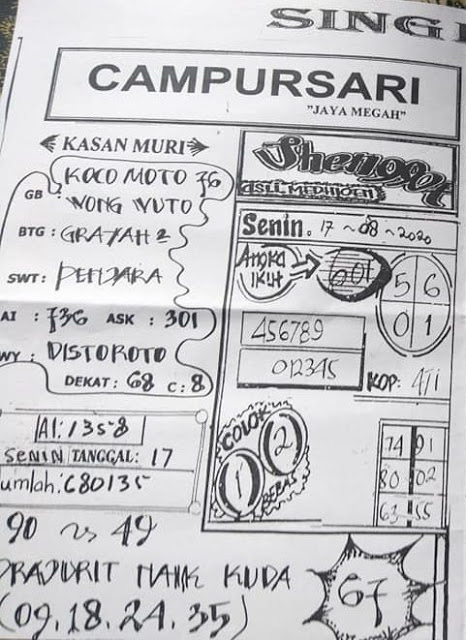 CAMPURSARI
"JAYA MEGAH"
KASAN MURI
KOCO MOTO 76
GB : WONG WUTO
BTG : GRAYAH2
SWT : PENDARA
AI : 736 ASK : 301
WY : DISTOROTO
DEKAT : 68 C : 8
AI : 135-8
SENIN TANGGAL : 17
umlah : 680135
90 vs 49
PRAJURIT NAIK KUDA
(09.18.24.35)
67
ASLI
Senin. 17 ~ 08 ~ 2020
ANGKA
IKUT
60t
5 6
0 1
456789
012345
KOP: 4/1
COLOK
1 2
BEBAS
74 91
80 02
63 55